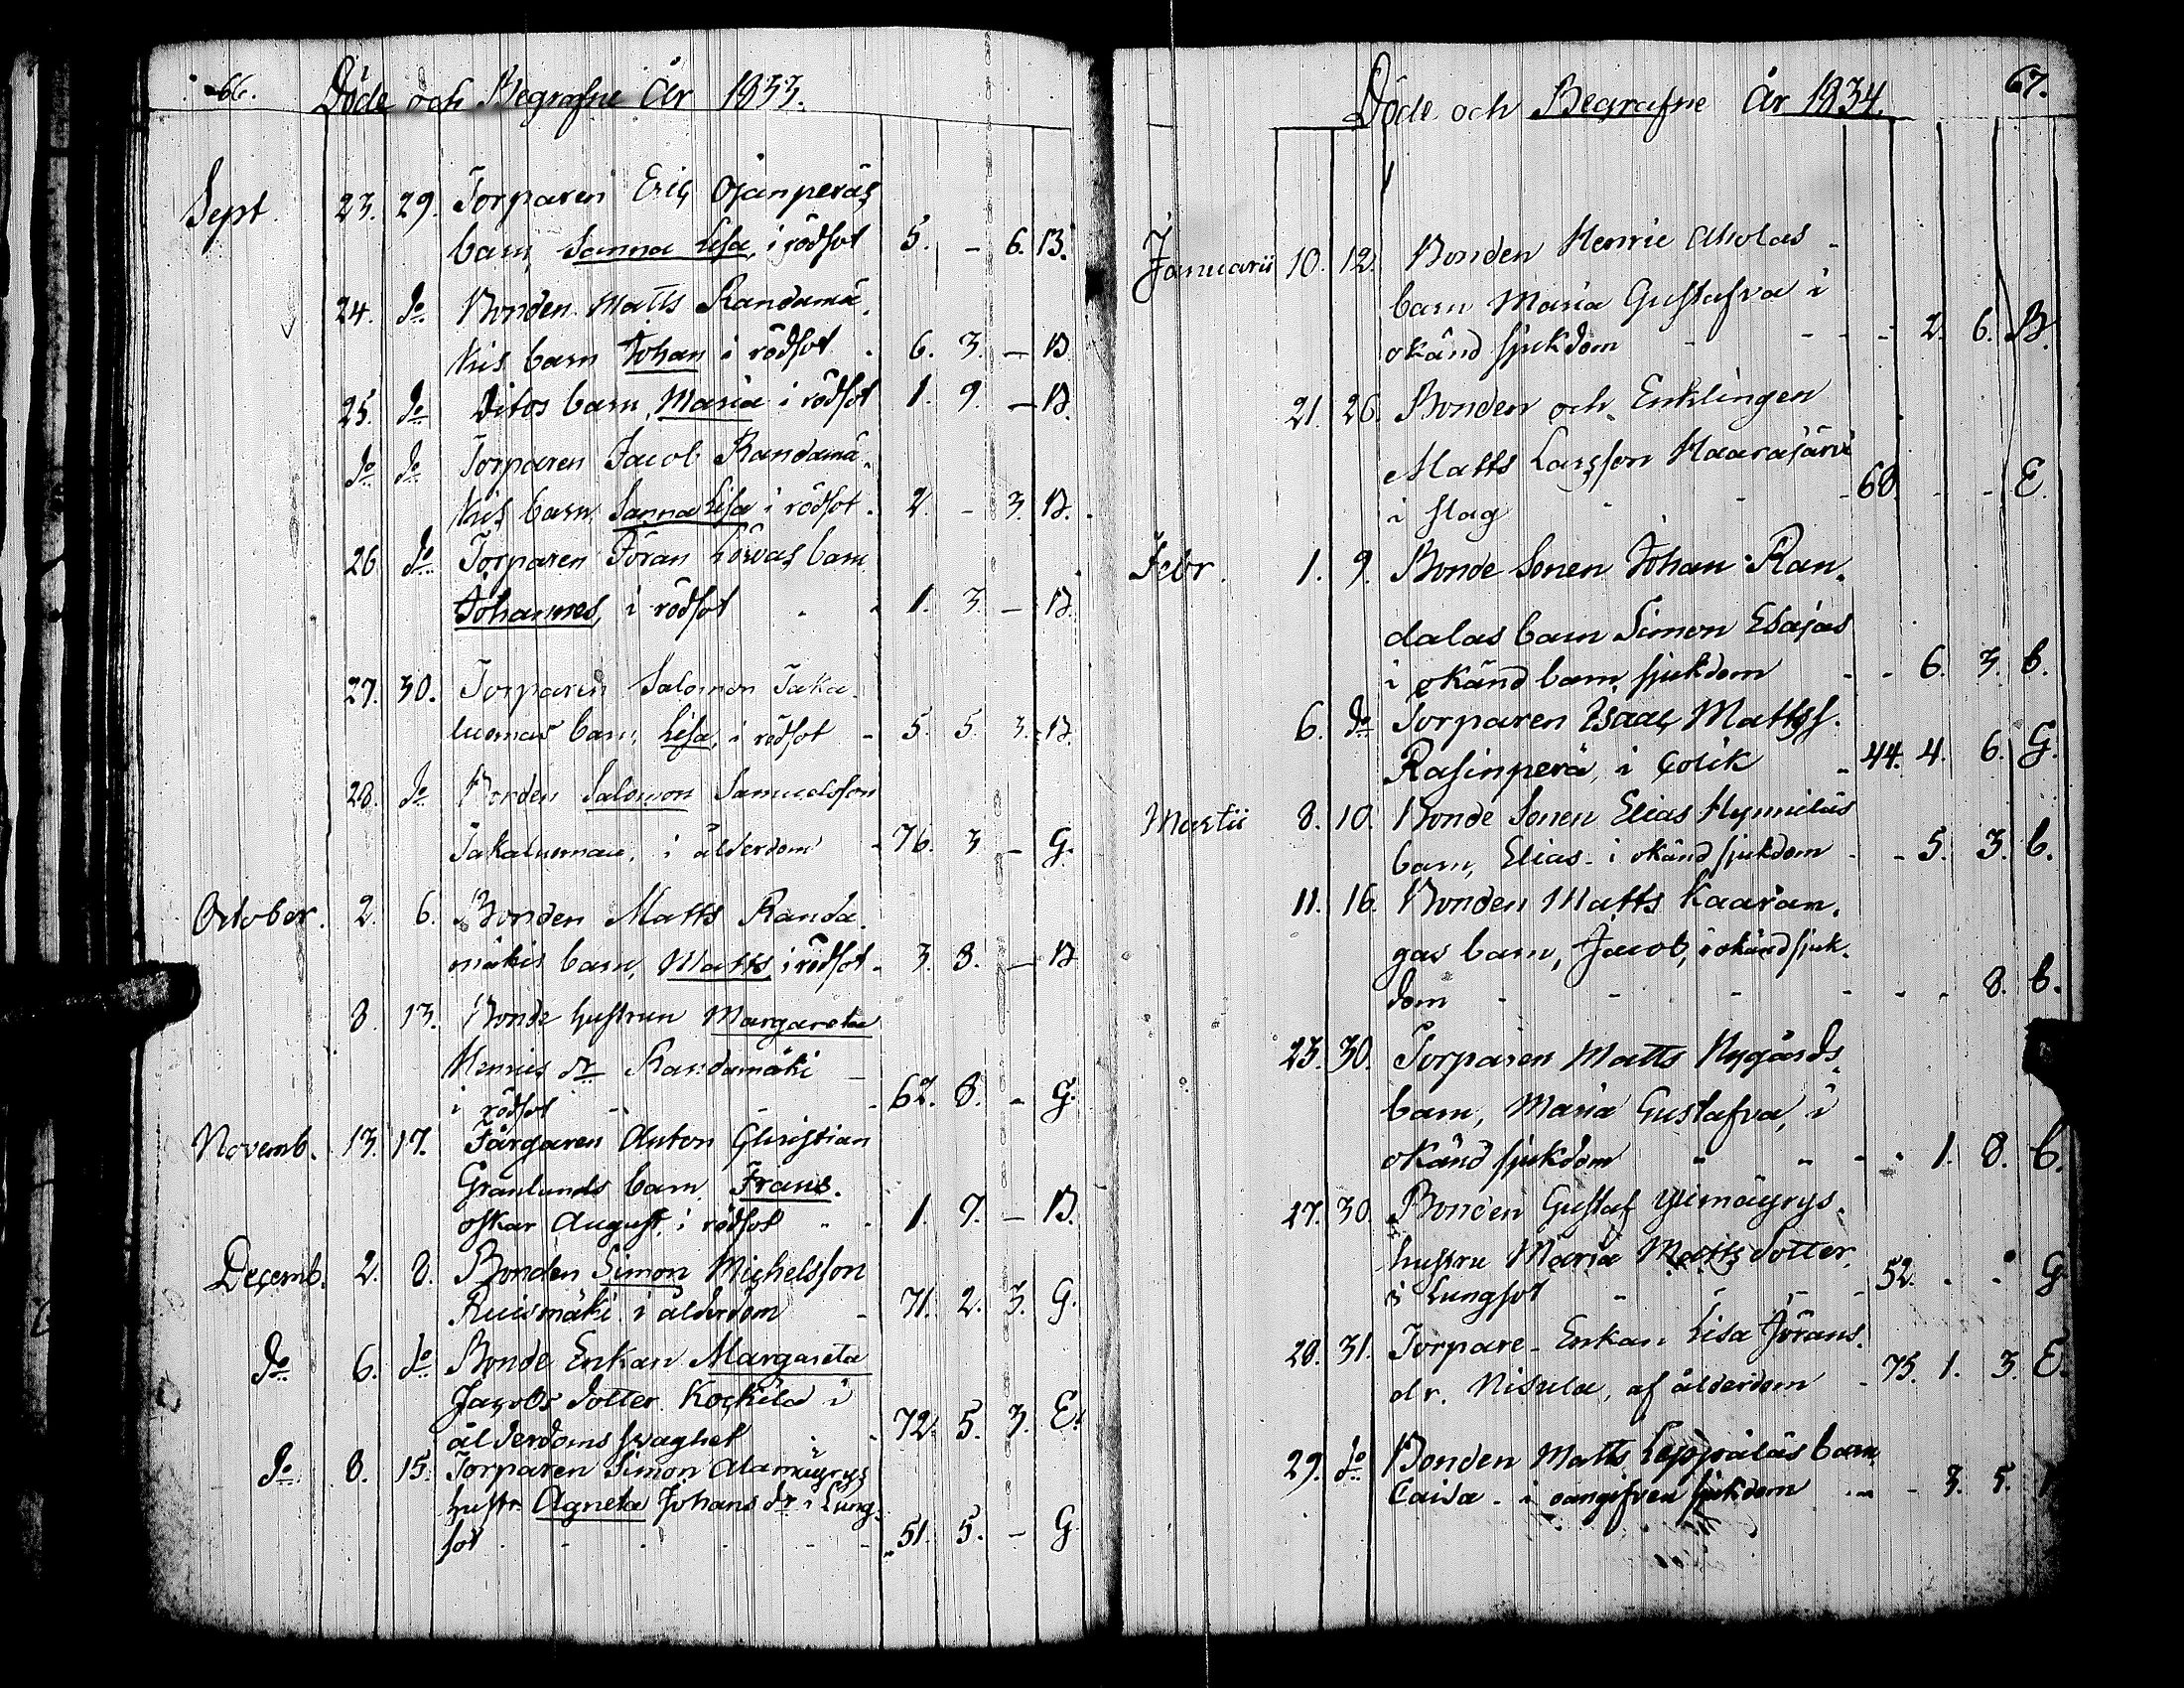 66.
Döde och Begrafne År 1833.
Sept. 23. 29. Torparen Eric Ojanperäs
barn, Sanna Lisa, i rödsot 5. - 6. B.
24. do Bonden Matts Randamä-
kis barn Johan i rödsot 6. 3. - B.
25. do Ditos barn, Maria i rödsot 1. 9. - B.
do do Torparen Jacob Randamä-
kis barn, Sanna Lisa i rödsot 2. - 3. B.
26 do Torparen Göran barn
Johannes, i rödsot 1. 3. - B.
27. 30. Torparen Salomon Jaka-
luomas barn, Lisa, i rödsot 5. 5. 3. B.
28. do Bonden Salomon Samuelsson
Jakaluoma, i ålderdom 76. 3 - G.
October. 2. 6. Bonden Matts Randa-
mäkis barn, Matts, i rödsot 3. 8. - B
8. 13. Bonde hustrun Margareta
Henrics dr Randamäki
i rödsot 62. 8. - G.
Novemb. 13. 17. Färgaren Anton Christian
Granlunds barn, Frans
Oskar August, i rödsot 1. 7. - B.
Decemb. 2. 8. Bonden Simon Michelsson
Ruismäki i ålderdom 71. 2. 3. G.
do 6. do Bonde Enkan Margareta
Jacobs dotter Kockila i
ålderdoms svaghet 72. 5. 3. E.
do 8. 15. Torparen Simon Alamäyrys
hustr. Agneta Johans dr i Lung-
sot 51. 5. - G
67.
Döde och Begrafne År 1834.
Januarii 10. 12. Bonden Henric Aholas
barn Maria Gustafva i
okänd sjukdom - 2. 6. B.
21. 26. Bonden och Enklingen
Matts Larsson Haarajärvi
i slag 68. - - E.
Febr. 1. 9. Bonde Sonen Johan Ran-
dalas barn Simon Esajas
i okänd barn sjukdom - 6. 3. b.
6. do Torparen Isaac Mattss.
Rasinperä, i Colik 44. 4. 6. G.
Martii 8. 10. Bonde Sonen Elias Hynniläs
barn, Elias - i okänd sjukdom - 5. 3. b.
11. 16. Bonden Matts Kaaran-
gas barn, Jacob, i okänd sjuk-
dom - - 8. b.
23. 30. Torparen Matts Nygårds
barn, Maria Gustafva, i
okänd sjukdom - 1. 8. b.
27. 30. Bonden Gustaf Ylimäyrys
hustru Maria Matts dotter,
i Lungsot 52. - - G
28. 31. Torpare-Enkan Lisa Görans
dr. Nisula, af ålderdom 75. 1. 3. E.
29. do Bonden Matts Leppäläs barn
Caisa - i oangifven sjukdom - 3. 5.